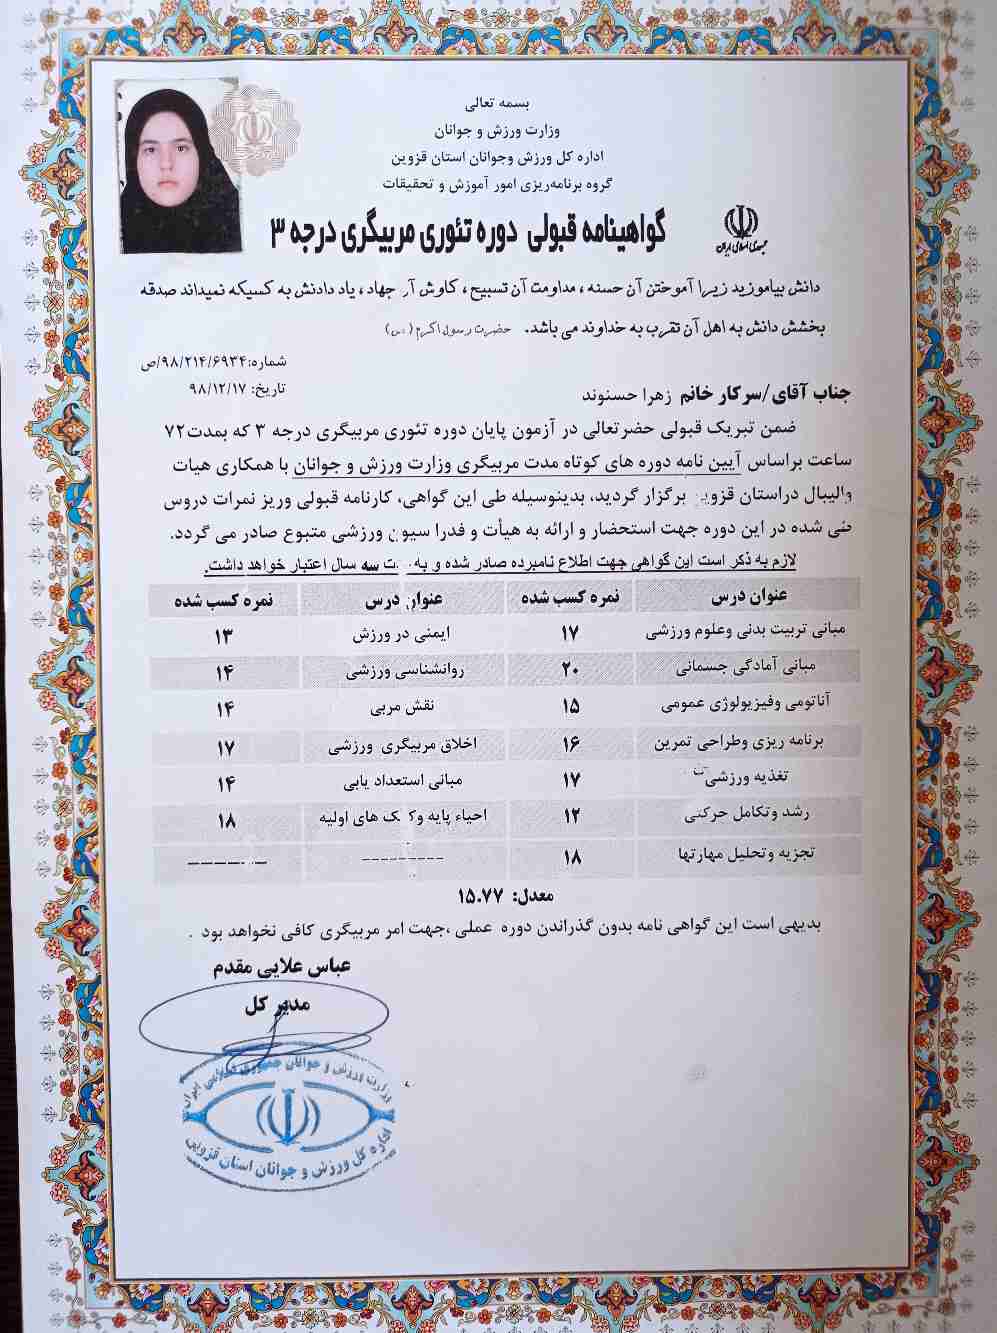 بسمه تعالی
وزارت ورزش و جوانان
اداره کل ورزش وجوانان استان قزوین
گروه برنامه‌ریزی امور آموزش و تحقیقات
گواهینامه قبولی دوره تئوری مربیگری درجه ۳
جمهوری اسلامی ایران
دانش بیاموزید زیرا آموختن آن حسنه ، مداومت آن تسبیح ، کاوش آن جهاد ، یاد دادنش به کسیکه نمیداند صدقه
بخشش دانش به اهل آن تقرب به خداوند می باشد. حضرت رسول اکرم (ص)
شماره:۹۸/۲۱۴/۶۹۳۴/ص
تاریخ: ۹۸/۱۲/۱۷
جناب آقای/سرکار خانم زهرا حسنوند
ضمن تبریک قبولی حضرتعالی در آزمون پایان دوره تئوری مربیگری درجه ۳ که بمدت۷۲
ساعت براساس آیین نامه دوره های کوتاه مدت مربیگری وزارت ورزش و جوانان با همکاری هیات
والیبال دراستان قزوین برگزار گردید، بدینوسیله طی این گواهی، کارنامه قبولی وریز نمرات دروس
طی شده در این دوره جهت استحضار و ارائه به هیأت و فدراسیون ورزشی متبوع صادر می گردد.
لازم به ذکر است این گواهی جهت اطلاع نامبرده صادر شده و به مدت سه سال اعتبار خواهد داشت.
عنوان درس نمره کسب شده عنوان درس نمره کسب شده
مبانی تربیت بدنی وعلوم ورزشی ۱۷ ایمنی در ورزش ۱۳
مبانی آمادگی جسمانی ۲۰ روانشناسی ورزشی ۱۴
آناتومی وفیزیولوژی عمومی ۱۵ نقش مربی ۱۴
برنامه ریزی وطراحی تمرین ۱۶ اخلاق مربیگری ورزشی ۱۷
تغذیه ورزشی ۱۷ مبانی استعداد یابی ۱۴
رشد وتکامل حرکتی ۱۲ احیاء پایه وکمک های اولیه ۱۸
تجزیه وتحلیل مهارتها ۱۸ --------- ---------
معدل: ۱۵.۷۷
بدیهی است این گواهی نامه بدون گذراندن دوره عملی ،جهت امر مربیگری کافی نخواهد بود .
عباس علایی مقدم
مدیر کل
وزارت ورزش و جوانان جمهوری اسلامی ایران
اداره کل ورزش و جوانان استان قزوین